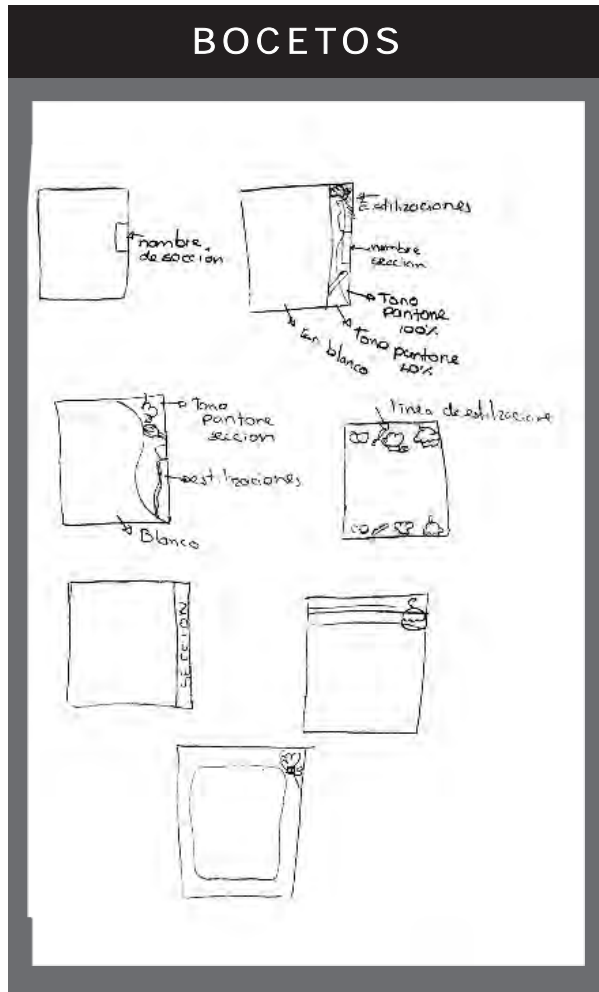 BOCETOS
nombre
de sección
Estilizaciones
nombre
seccion
Tono
pantone
100%
Tono pantone
en blanco
Tono
pantone
seccion
estilizaciones
Blanco
linea de estilizacione
SECCION